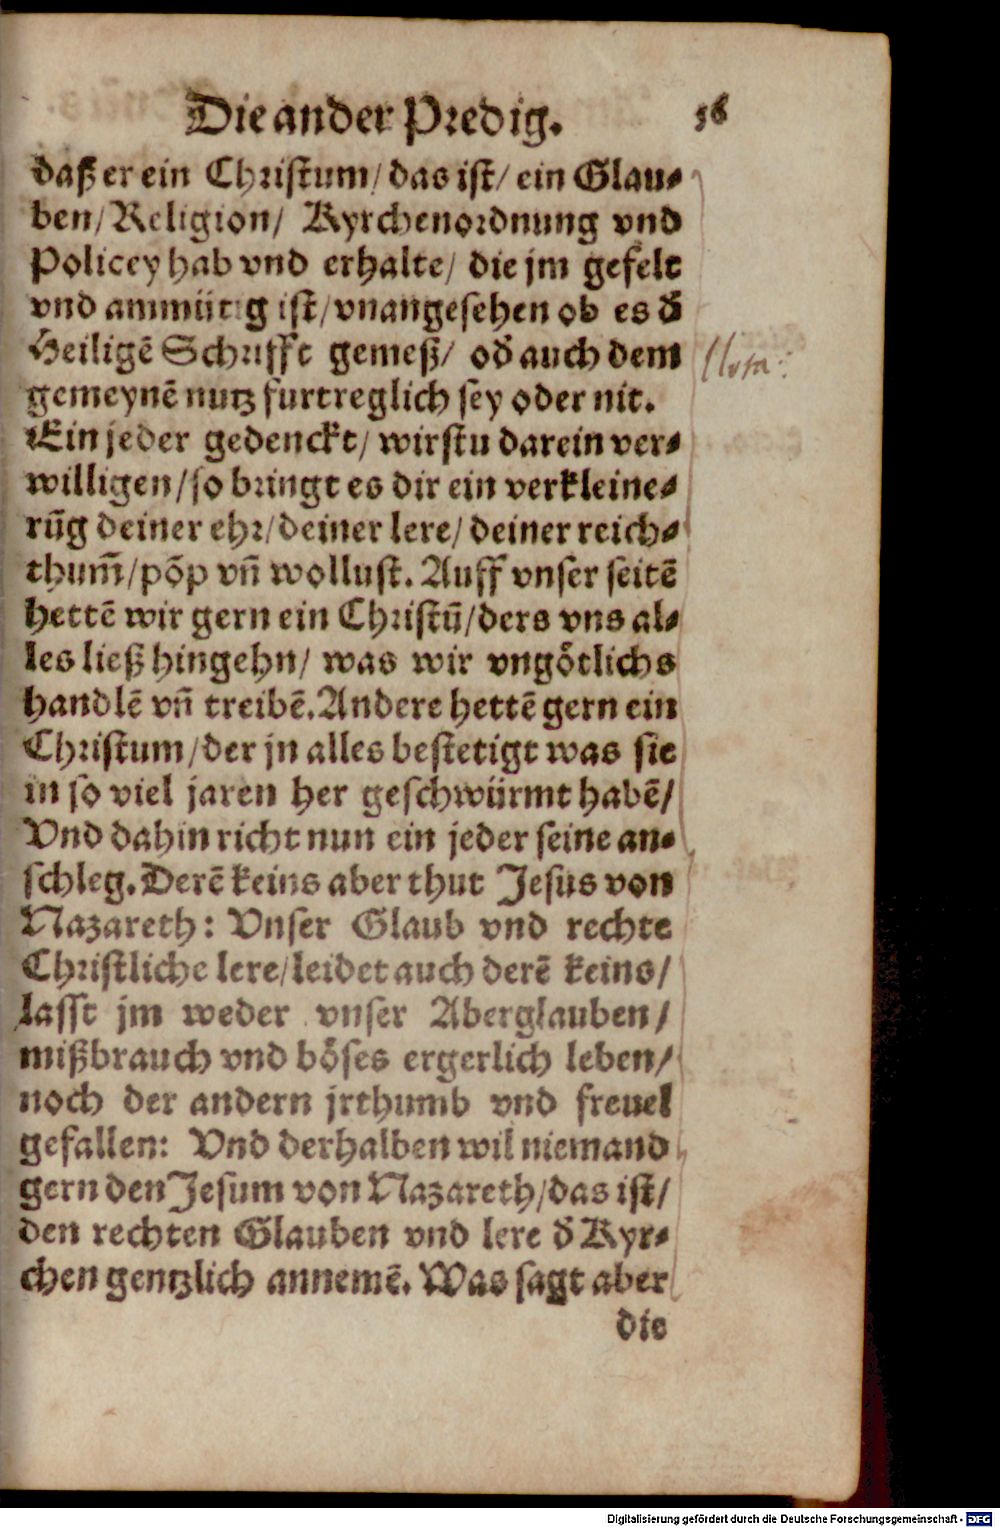 Die ander Predig. 56
daß er ein Christum/ das ist/ ein Glau⸗
ben/ Religion/ Kyrchenordnung vnd
Policey hab vnd erhalte/ die jm gefelt
vnd anmütig ist/ vnangesehen ob es d̄
Heiligē Schrifft gemeß/ od̄ auch dem
gemeynē nutz furtreglich sey oder nit.
Ein jeder gedenckt/ wirstu darein ver⸗
willigen/ so bringt es dir ein verkleine⸗
rūg deiner ehr/ deiner lere/ deiner reich⸗
thum̄/ põp vñ wollust. Auff vnser seitē
hettē wir gern ein Christū/ ders vns al⸗
les ließ hingehn/ was wir vngötlichs
handlē vñ treibē. Andere hettē gern ein
Christum/ der jn alles bestetigt was sie
in so viel jaren her geschwürmt habē/
Vnd dahin richt nun ein jeder seine an⸗
schleg. Derē keins aber thut Jesus von
Nazareth: Vnser Glaub vnd rechte
Christliche lere/ leidet auch derē keins/
lasst jm weder vnser Aberglauben/
mißbrauch vnd böses ergerlich leben/
noch der andern jrthumb vnd freuel
gefallen: Vnd derhalben wil niemand
gern den Jesum von Nazareth/ das ist/
den rechten Glauben vnd lere d̄ Kyr⸗
chen gentzlich annemē. Was sagt aber
die
Nota:
Digitalisierung gefördert durch die Deutsche Forschungsgemeinschaft - DFG